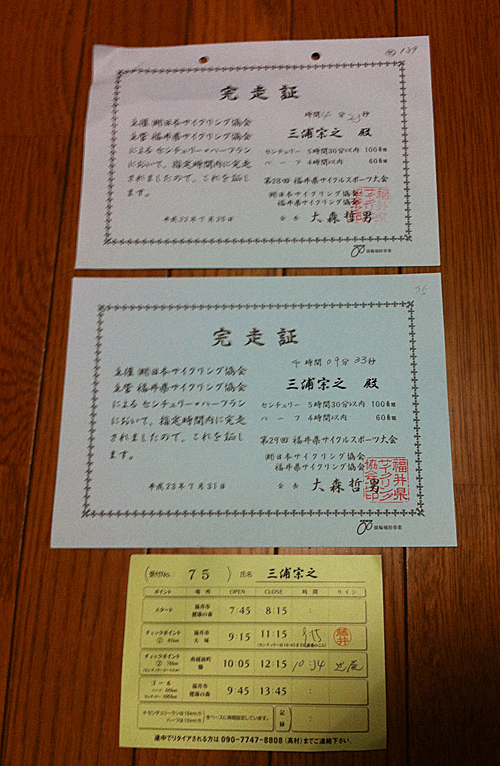 189
完走証
時間 4 分 25 秒
主催 (財)日本サイクリング協会
主管 福井県サイクリング協会
によるセンチュリー・ハーフラン
において、指定時間内に完走
されましたので、これを証し
ます。
三浦宗之 殿
センチュリー 5時間30分以内 100粁
ハーフ 4時間以内 60粁
第28回 福井県サイクルスポーツ大会
(財)日本サイクリング協会
福井県サイクリング協会
平成22年7月25日
会長 大森哲男
競輪補助事業
75
完走証
4 時間 09 分 33 秒
主催 (財)日本サイクリング協会
主管 福井県サイクリング協会
によるセンチュリー・ハーフラン
において、指定時間内に完走
されましたので、これを証し
ます。
三浦宗之 殿
センチュリー 5時間30分以内 100粁
ハーフ 4時間以内 60粁
第29回 福井県サイクルスポーツ大会
(財)日本サイクリング協会
福井県サイクリング協会
平成23年7月31日
会長 大森哲男
福井県サイクリング協会印
競輪補助事業
(受付No. 75 ) 氏名 三浦宗之
ポイント 場所 OPEN CLOSE 時間 サイン
スタート 福井市 健康の森 7:45 8:15 :
チェックポイント ① 福井市 9:15 11:15 9:15 藤井
チェックポイント ② 南越前町 10:05 12:15 10:34
ゴール 福井市 健康の森 9:45 13:45 :
各ペースに時間設定しています。
記録 :
途中でリタイアされる方は 090-7747-8808 (高村)までご連絡下さい。